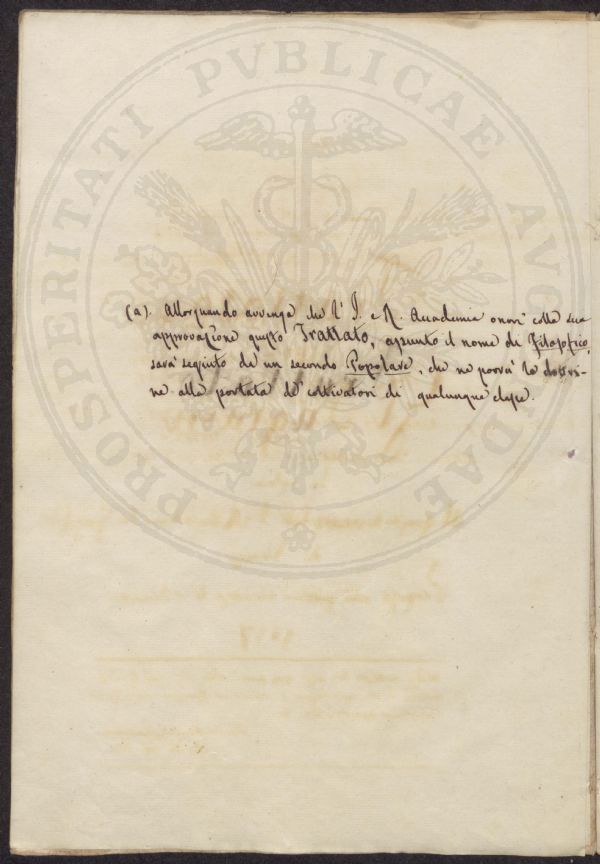 PROSPERITATI PVBLICAE AVGENDAE
(a). Allorquando avvenga che l' I. e R. Accademia onori colla sua
approvazione questo Trattato, assunto il nome di Filosofico,
sarà seguito da un secondo Popolare, che ne porrà le dottri-
ne alla portata de' coltivatori di qualunque classe.